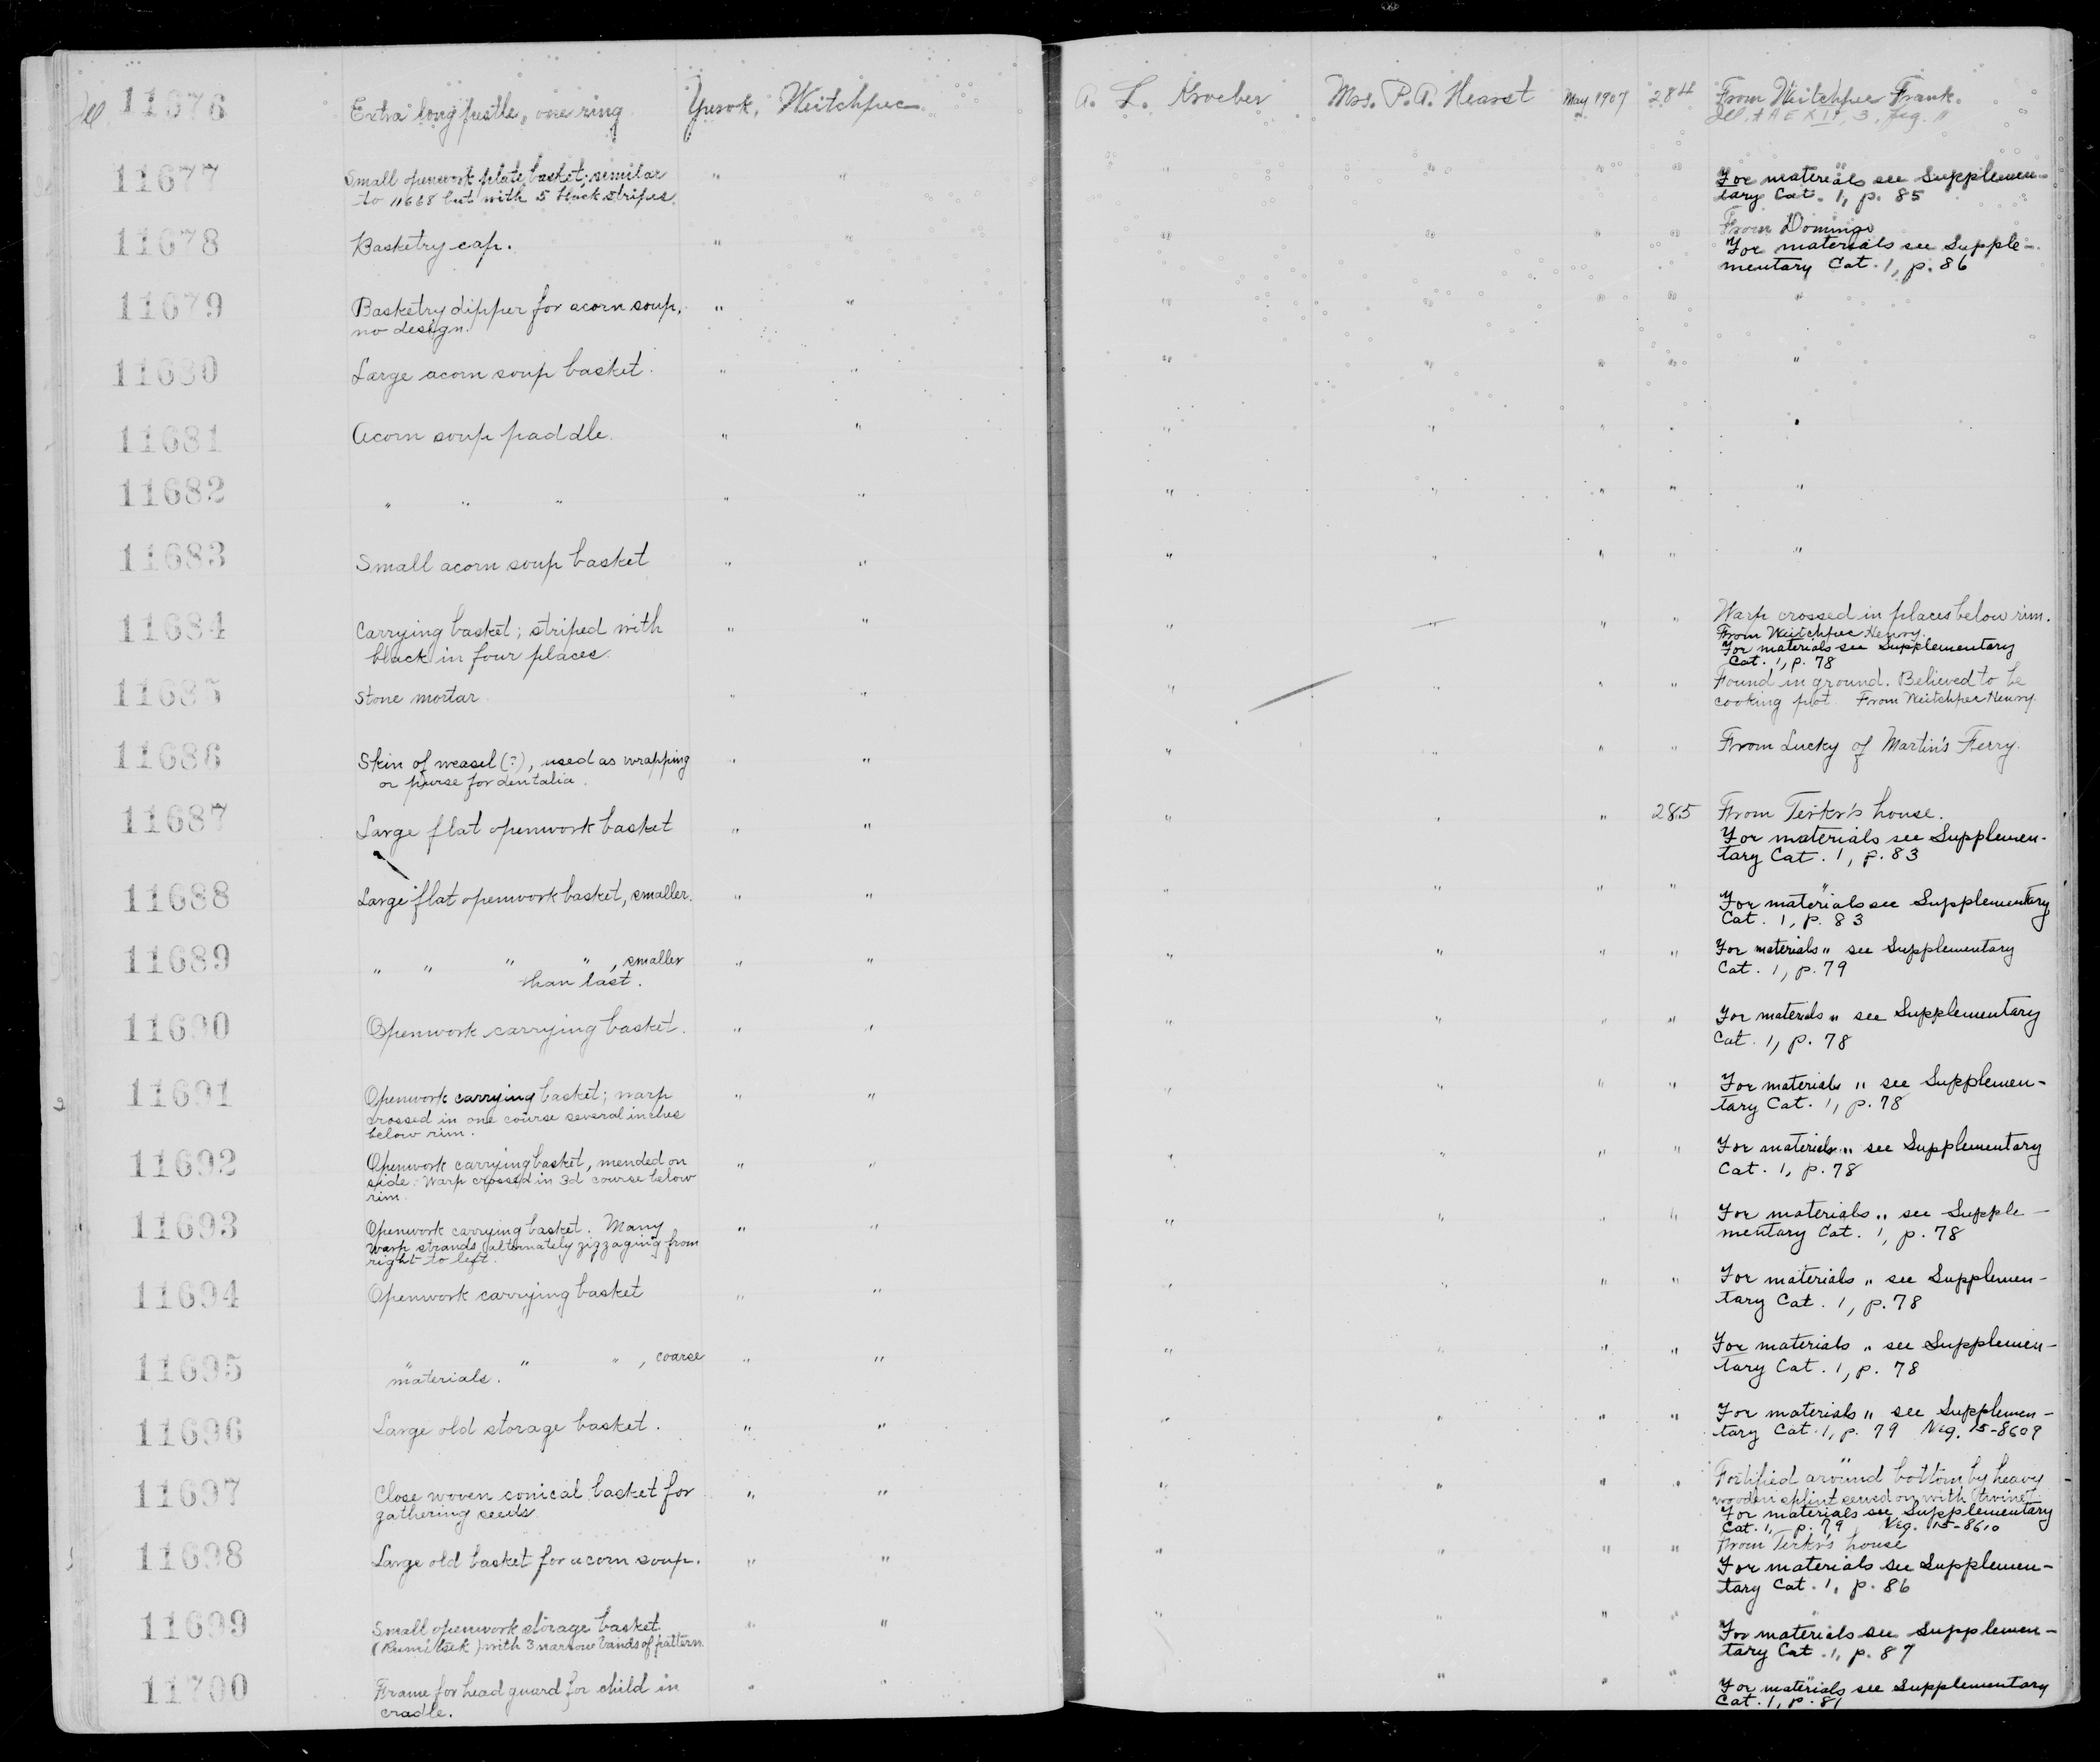 Ill. 11676 Extra long pestle, one ring Yurok, Weitchpec A. L. Kroeber Mrs. P. A. Hearst May 1907 284 From Weitchpec Frank.
Ill. AAE XIV, 3, fig. 11
11677 Small openwork plate basket; similar " " " " " " "
to 11668 but with 5 black stripes. For materials see Supplemen-
tary Cat. 1, p. 85
11678 Basketry cap. " " " " " " From Domingo
For materials see Supple-
mentary Cat. 1, p. 86
11679 Basketry dipper for acorn soup, " " " " " " "
no design.
11680 Large acorn soup basket. " " " " " " "
11681 Acorn soup paddle. " " " " " " "
11682 " " " " " " " " " "
11683 Small acorn soup basket " " " " " " "
11684 Carrying basket; striped with " " " " " " Warp crossed in places below rim.
black in four places. From Weitchpec Henry.
For materials see Supplementary
Cat. 1, p. 78
11685 Stone mortar " " " " " " Found in ground. Believed to be
cooking pot. From Weitchpec Henry.
11686 Skin of weasel (?), used as wrapping " " " " " " From Lucky of Martin's Ferry.
or purse for dentalia.
11687 Large flat openwork basket " " " " " 285 From Terkr's house.
For materials see Supplemen-
tary Cat. 1, p. 83
11688 Large flat openwork basket, smaller. " " " " " " "
For materials see Supplementary
Cat. 1, p. 83
11689 " " " " , smaller " " " " " " For materials " see Supplementary
than last. Cat. 1, p. 79
11690 Openwork carrying basket. " " " " " " For materials " see Supplementary
Cat. 1, p. 78
11691 Openwork carrying basket; warp " " " " " " For materials " see Supplemen-
crossed in one course several inches tary Cat. 1, p. 78
below rim.
11692 Openwork carrying basket, mended on " " " " " " For materials " see Supplementary
side. Warp crossed in 3d course below Cat. 1, p. 78
rim.
11693 Openwork carrying basket. Many " " " " " " For materials " see Supple-
warp strands alternately zigzaging from mentary Cat. 1, p. 78
right to left.
11694 Openwork carrying basket " " " " " " For materials " see Supplemen-
tary Cat. 1, p. 78
11695 " " " , coarse " " " " " " For materials " see Supplemen-
materials. tary Cat. 1, p. 78
11696 Large old storage basket. " " " " " " For materials " see Supplemen-
tary Cat. 1, p. 79 Neg. 15-8609
11697 Close woven conical basket for " " " " " " Fortified around bottom by heavy
gathering seeds wooden splint sewed on with twine.
For materials see Supplementary
Cat. 1, p. 79 Neg. 15-8610
11698 Large old basket for acorn soup. " " " " " " From Terkr's house
For materials see Supplemen-
tary Cat. 1, p. 86
11699 Small openwork storage basket " " " " " " "
with 3 narrow bands of pattern. For materials see Supplemen-
tary Cat. 1, p. 87
11700 Frame for head guard for child in " " " " " "
cradle. For materials see Supplementary
Cat. 1, p. 81